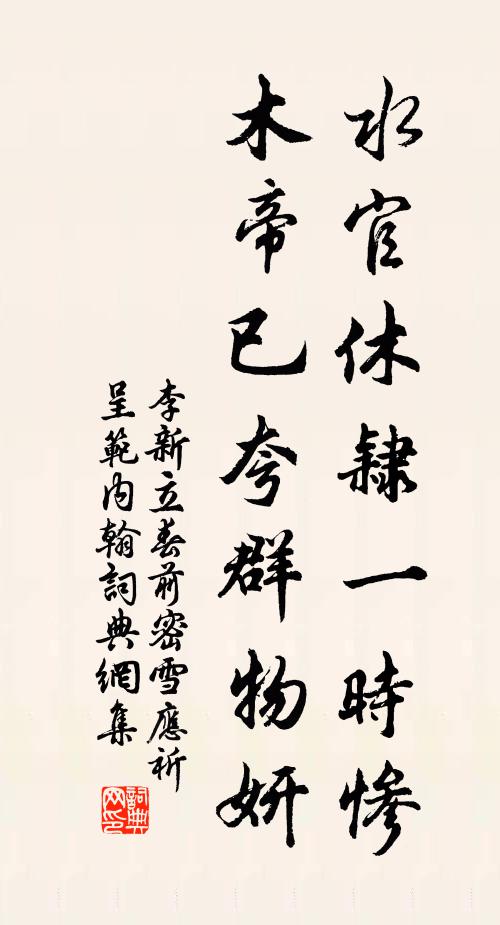 水官休隸一時慘
木帝已夸群物妍
李新立春前密雪應祈
呈範内翰詞典網集
詞典
网印